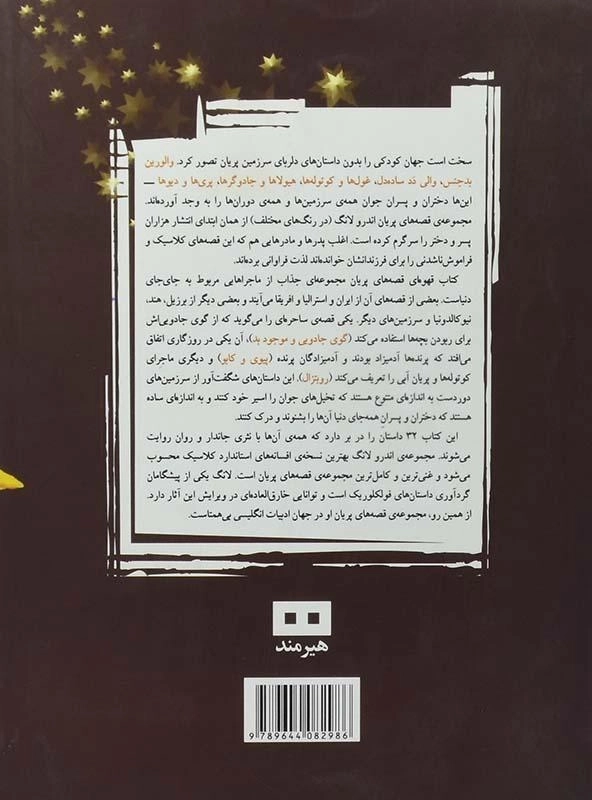 سخت است جهان کودکی را بدون داستان‌های دلربای سرزمین پریان تصور کرد. والورین
بدجنس، والی دَد ساده‌دل، غول‌ها و کوتوله‌ها، هیولاها و جادوگرها، پری‌ها و دیوها —
این‌ها دختران و پسران جوان همه‌ی سرزمین‌ها و همه‌ی دوران‌ها را به وجد آورده‌اند.
مجموعه‌ی قصه‌های پریان اندرو لانگ (در رنگ‌های مختلف) از همان ابتدای انتشار هزاران
پسر و دختر را سرگرم کرده است. اغلب پدرها و مادرهایی هم که این قصه‌های کلاسیک و
فراموش‌ناشدنی را برای فرزندانشان خوانده‌اند لذت فراوانی برده‌اند.
کتاب قهوه‌ای قصه‌های پریان مجموعه‌ی جذاب از ماجراهایی مربوط به جای‌جای
دنیاست. بعضی از قصه‌های آن از ایران و استرالیا و افریقا می‌آیند و بعضی دیگر از برزیل، هند،
نیوکالدونیا و سرزمین‌های دیگر. یکی قصه‌ی ساحره‌ای را می‌گوید که از گوی جادویی‌اش
برای ربودن بچه‌ها استفاده می‌کند (گوی جادویی و موجود بد)، آن یکی در روزگاری اتفاق
می‌افتد که پرنده‌ها آدمیزاد بودند و آدمیزادگان پرنده (پیوی و کابو) و دیگری ماجرای
کوتوله‌ها و پریان آبی را تعریف می‌کند (روبنزال). این داستان‌های شگفت‌آور از سرزمین‌های
دوردست به اندازه‌ای متنوع هستند که تخیل‌های جوان را اسیر خود کنند و به اندازه‌ای ساده
هستند که دختران و پسرانِ همه‌جای دنیا آن‌ها را بشنوند و درک کنند.
این کتاب ۳۲ داستان را در بر دارد که همه‌ی آن‌ها با نثری جاندار و روان روایت
می‌شوند. مجموعه‌ی اندرو لانگ بهترین نسخه‌ی افسانه‌های استاندارد کلاسیک محسوب
می‌شود و غنی‌ترین و کامل‌ترین مجموعه‌ی قصه‌های پریان است. لانگ یکی از پیشگامان
گردآوری داستان‌های فولکلوریک است و توانایی خارق‌العاده‌ای در ویرایش این آثار دارد.
از همین رو، مجموعه‌ی قصه‌های پریان او در جهان ادبیات انگلیسی بی‌همتاست.
هیرمند
9 789644 082986